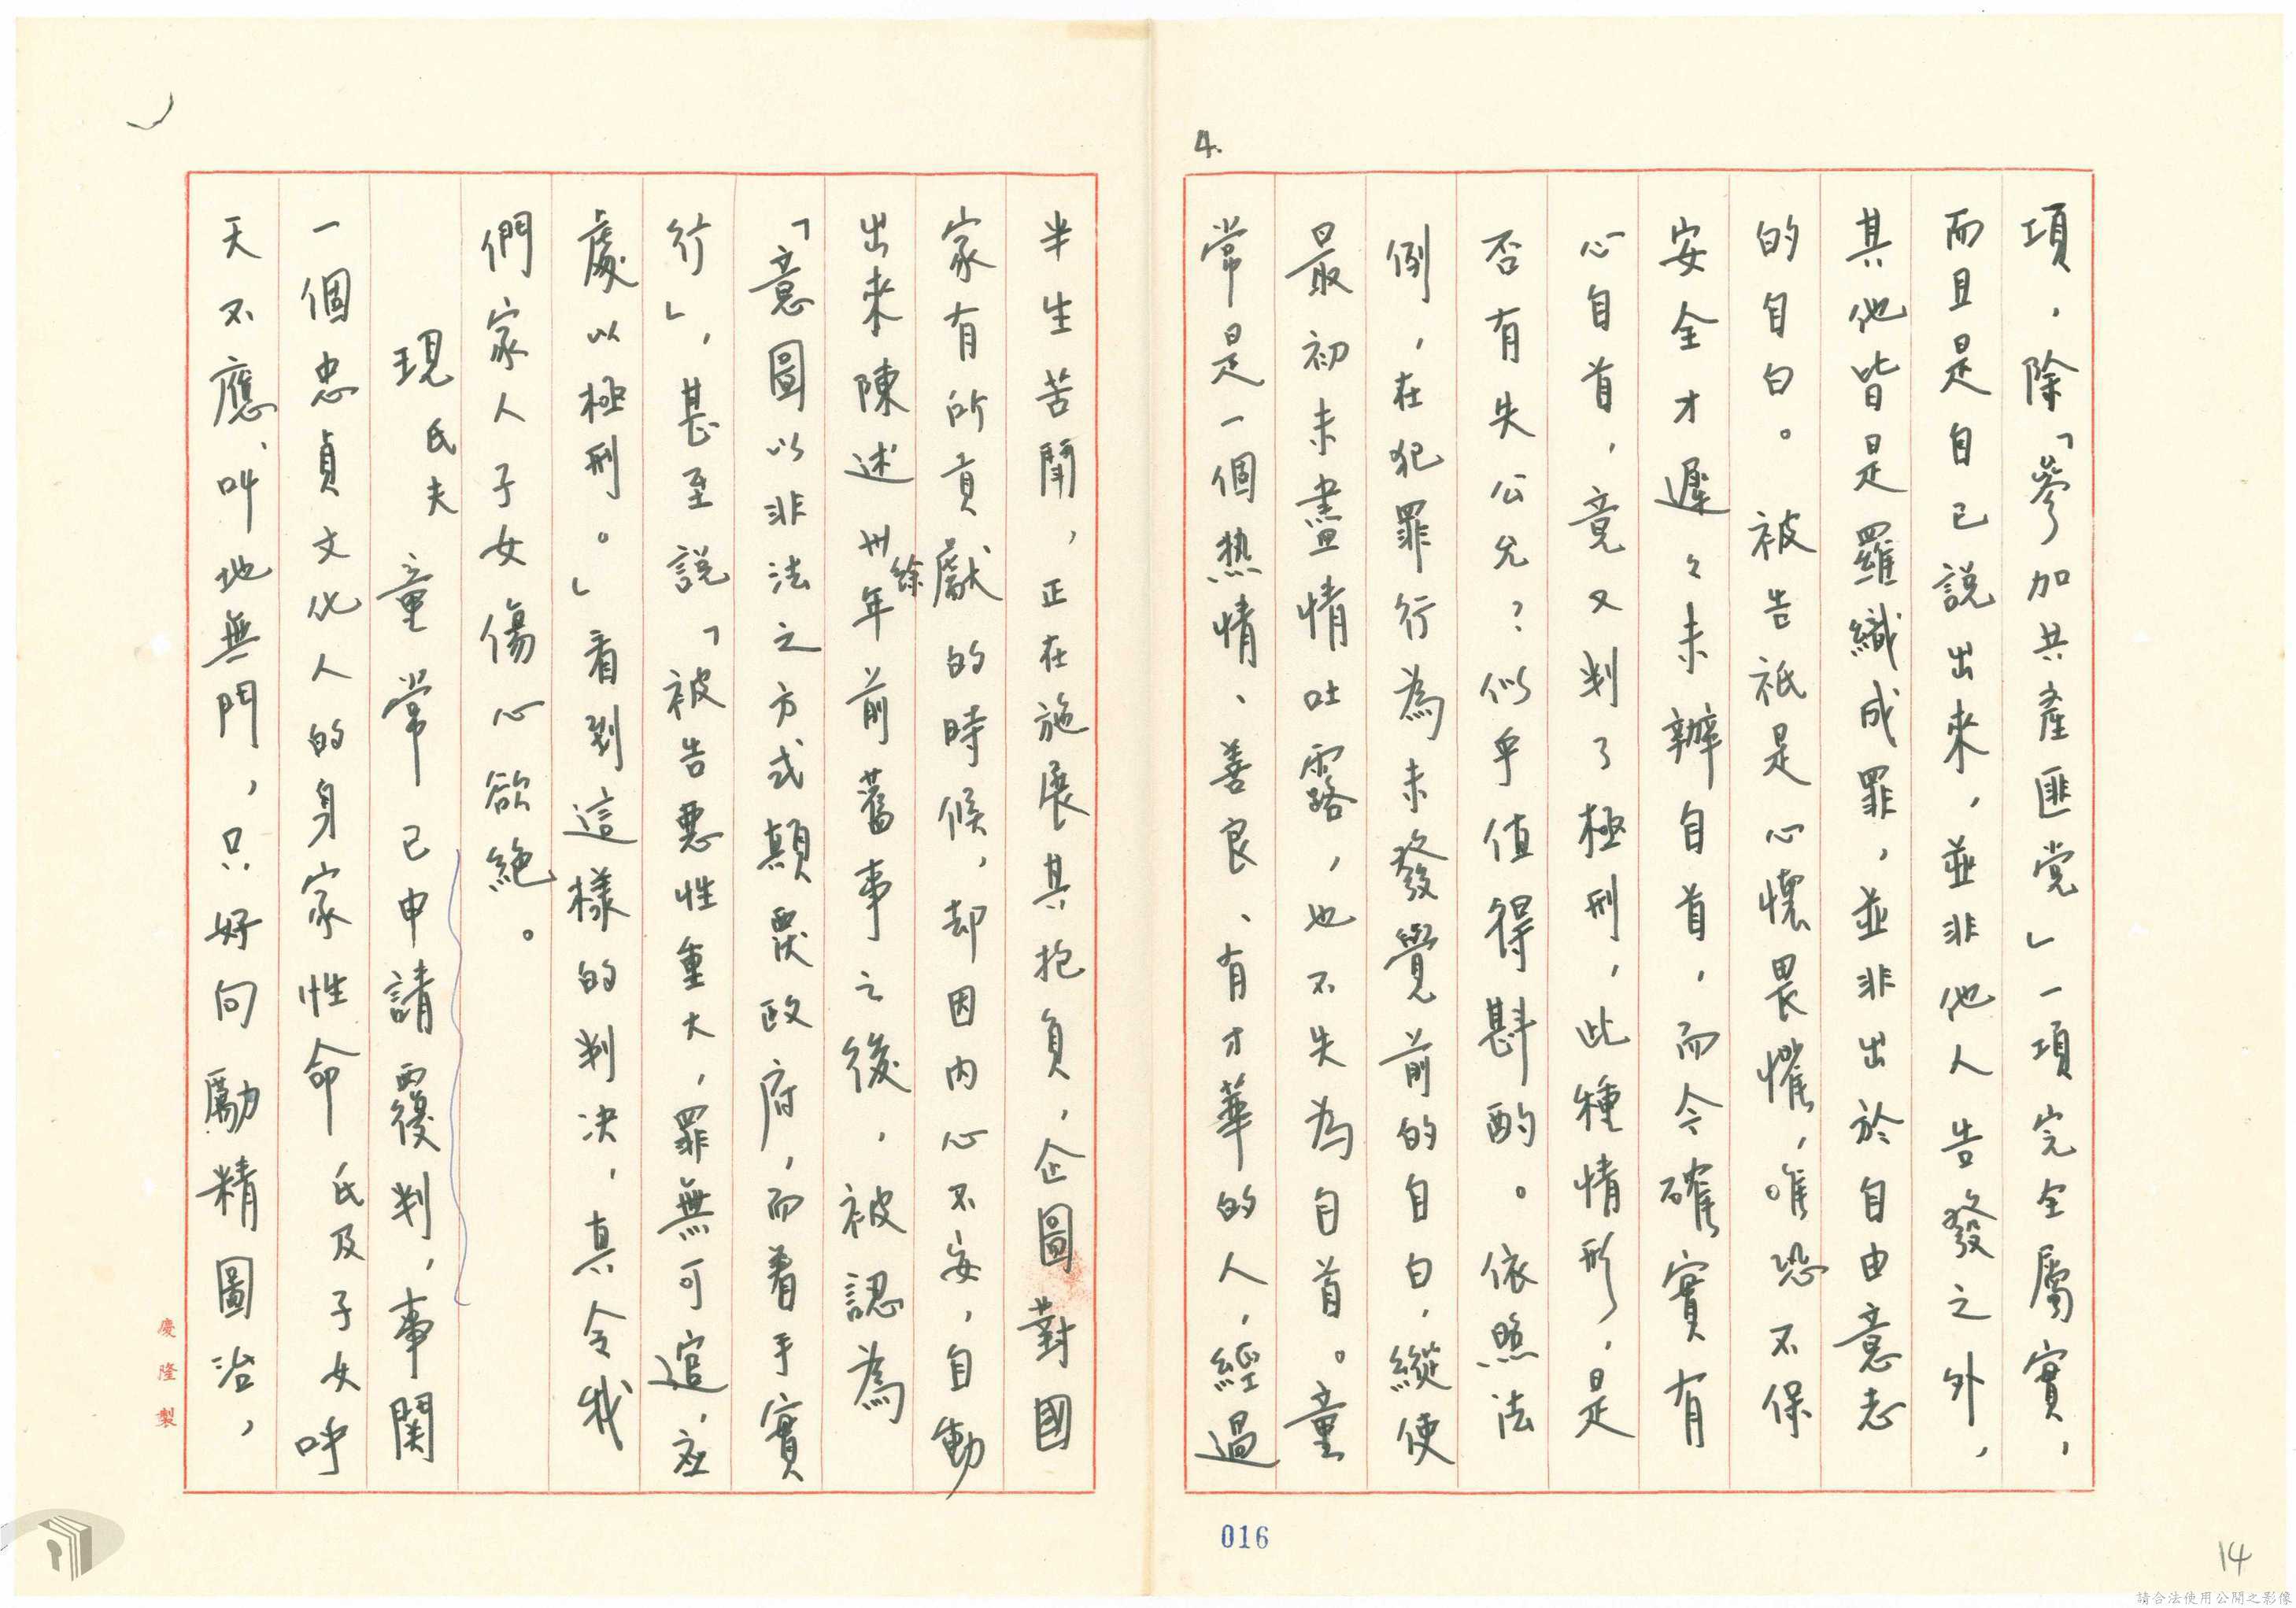 4.
項，除「參加共產匪党」一項完全屬實，
而且是自己說出來，並非他人告發之外，
其他皆是羅織成罪，並非出於自由意志
的自白。被告祇是心懷畏懼，唯恐不保
安全才遲々未辦自首，而今確實有
心自首，竟又判了極刑，此種情形，是
否有失公允？似乎值得斟酌。依照法
例，在犯罪行為未發覺前的自白，縱使
最初未盡情吐露，也不失為自首。童
常是一個热情、善良、有才華的人，經過
半生苦鬪，正在施展其抱負，企圖對國
家有所貢獻的時候，却因內心不安，自動
出來陳述卅餘年前舊事之後，被認為
「意圖以非法之方式顛覆政府，而着手實
行」，甚至說「被告惡性重大，罪無可逭，應
處以極刑。」看到這樣的判決，真令我
們家人子女傷心欲絕。
現氏夫童常已申請覆判，事関
一個忠貞文化人的身家性命氏及子女呼
天不應、叫地無門，只好向勵精圖治，
慶隆製
016
14
請合法使用公開之影像